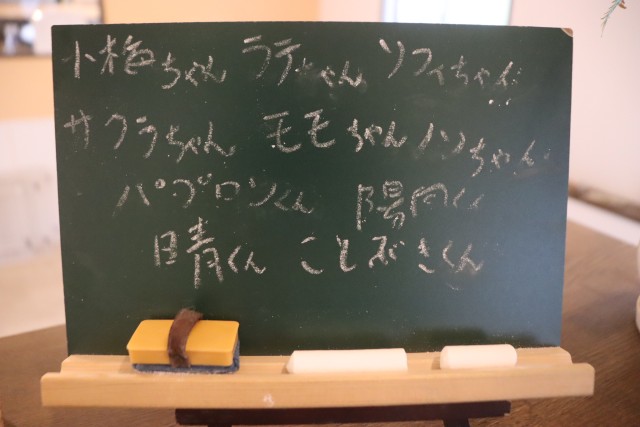 小梅ちゃん ラテちゃん ソフィちゃん
サクラちゃん モモちゃん ノンちゃん
パブロンくん 陽向くん
晴くん ことぶきくん